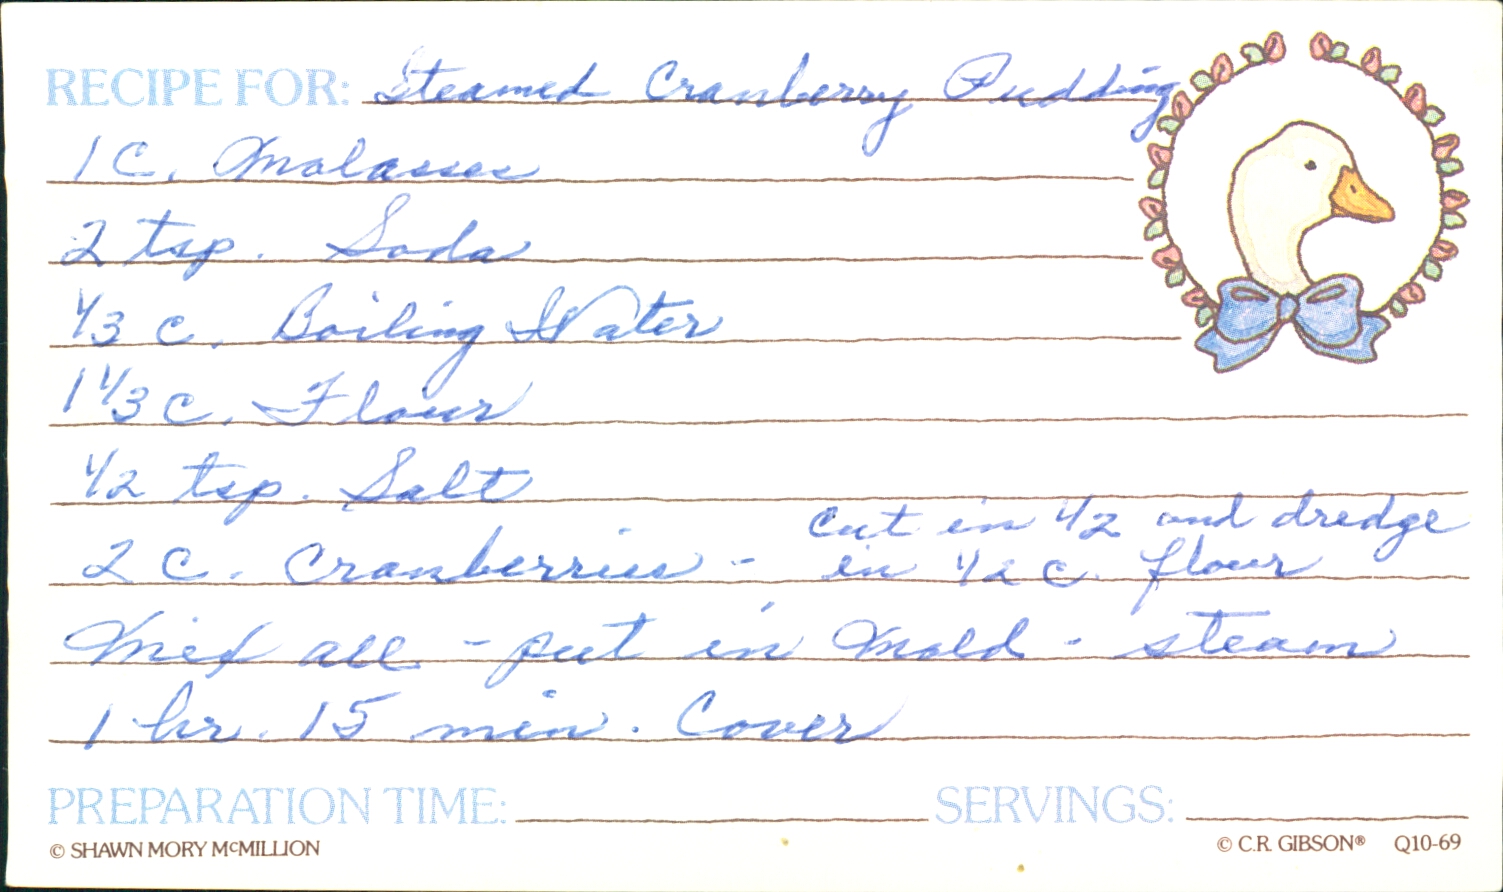 RECIPE FOR: Steamed Cranberry Pudding
1 C. Molasses
2 tsp. Soda
1/3 c. Boiling Water
1 1/3 c. Flour
1/2 tsp. Salt
2 C. Cranberries - cut in 1/2 and dredge
in 1/2 c. flour
Mix all - put in Mold - steam
1 hr. 15 min. Cover
PREPARATION TIME: SERVINGS:
© SHAWN MORY McMILLION © C.R. GIBSON® Q10-69